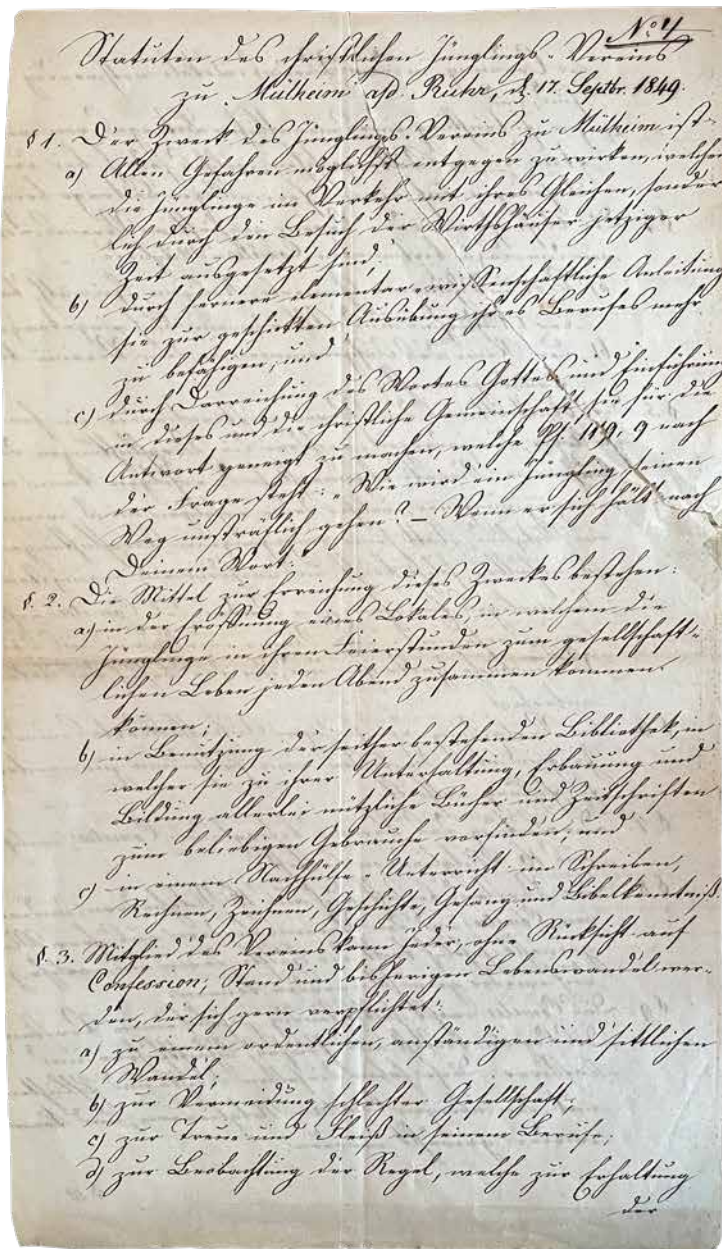 No. 4
Statuten des christlichen Jünglings-Vereins
zu Mülheim a/d. Ruhr, d. 17. Septbr. 1849.
§ 1. Der Zweck des Jünglings-Vereins zu Mülheim ist:
a) Allen Gefahren möglichst entgegen zu wirken, welchen
die Jünglinge im Verkehr mit ihres Gleichen, sonder-
lich durch den Besuch der Wirthshäuser jetziger
Zeit ausgesetzt sind;
b) durch fernere elementar-wissenschaftliche Anleitung
sie zur geschickten Ausübung ihres Berufes mehr
zu befähigen; und
c) durch Darreichung des Wortes Gottes und Einführung
in dieses und die christliche Gemeinschaft, sie für die
Antwort geneigt zu machen, welche Ps. 119, 9 nach
der Frage steht: „Wie wird ein Jüngling seinen
Weg unsträflich gehen? – Wenn er sich hält nach
Deinem Wort.“
§. 2. Die Mittel zur Erreichung dieses Zweckes bestehen:
a) in der Eröffnung eines Lokales, in welchem die
Jünglinge in ihren Feierstunden zum gesellschaft-
lichen Leben jeden Abend zusammen kommen
können;
b) in Benutzung der seither bestehenden Bibliothek, in
welcher sie zu ihrer Unterhaltung, Erbauung und
Bildung allerlei nützliche Bücher und Zeitschriften
zum beliebigen Gebrauche vorfinden; und
c) in einem Nachhülfe-Unterricht im Schreiben,
Rechnen, Zeichnen, Geschichte, Gesang und Bibelkenntniß.
§. 3. Mitglied des Vereins kann Jeder, ohne Rücksicht auf
Confession, Stand und bisherigen Lebenswandel wer-
den, der sich gern verpflichtet:
a) zu einem ordentlichen, anständigen und sittlichen
Wandel;
b) zur Vermeidung schlechter Gesellschaft;
c) zur Treue und Fleiß in seinem Berufe;
d) zur Beobachtung der Regel, welche zur Erhaltung
der